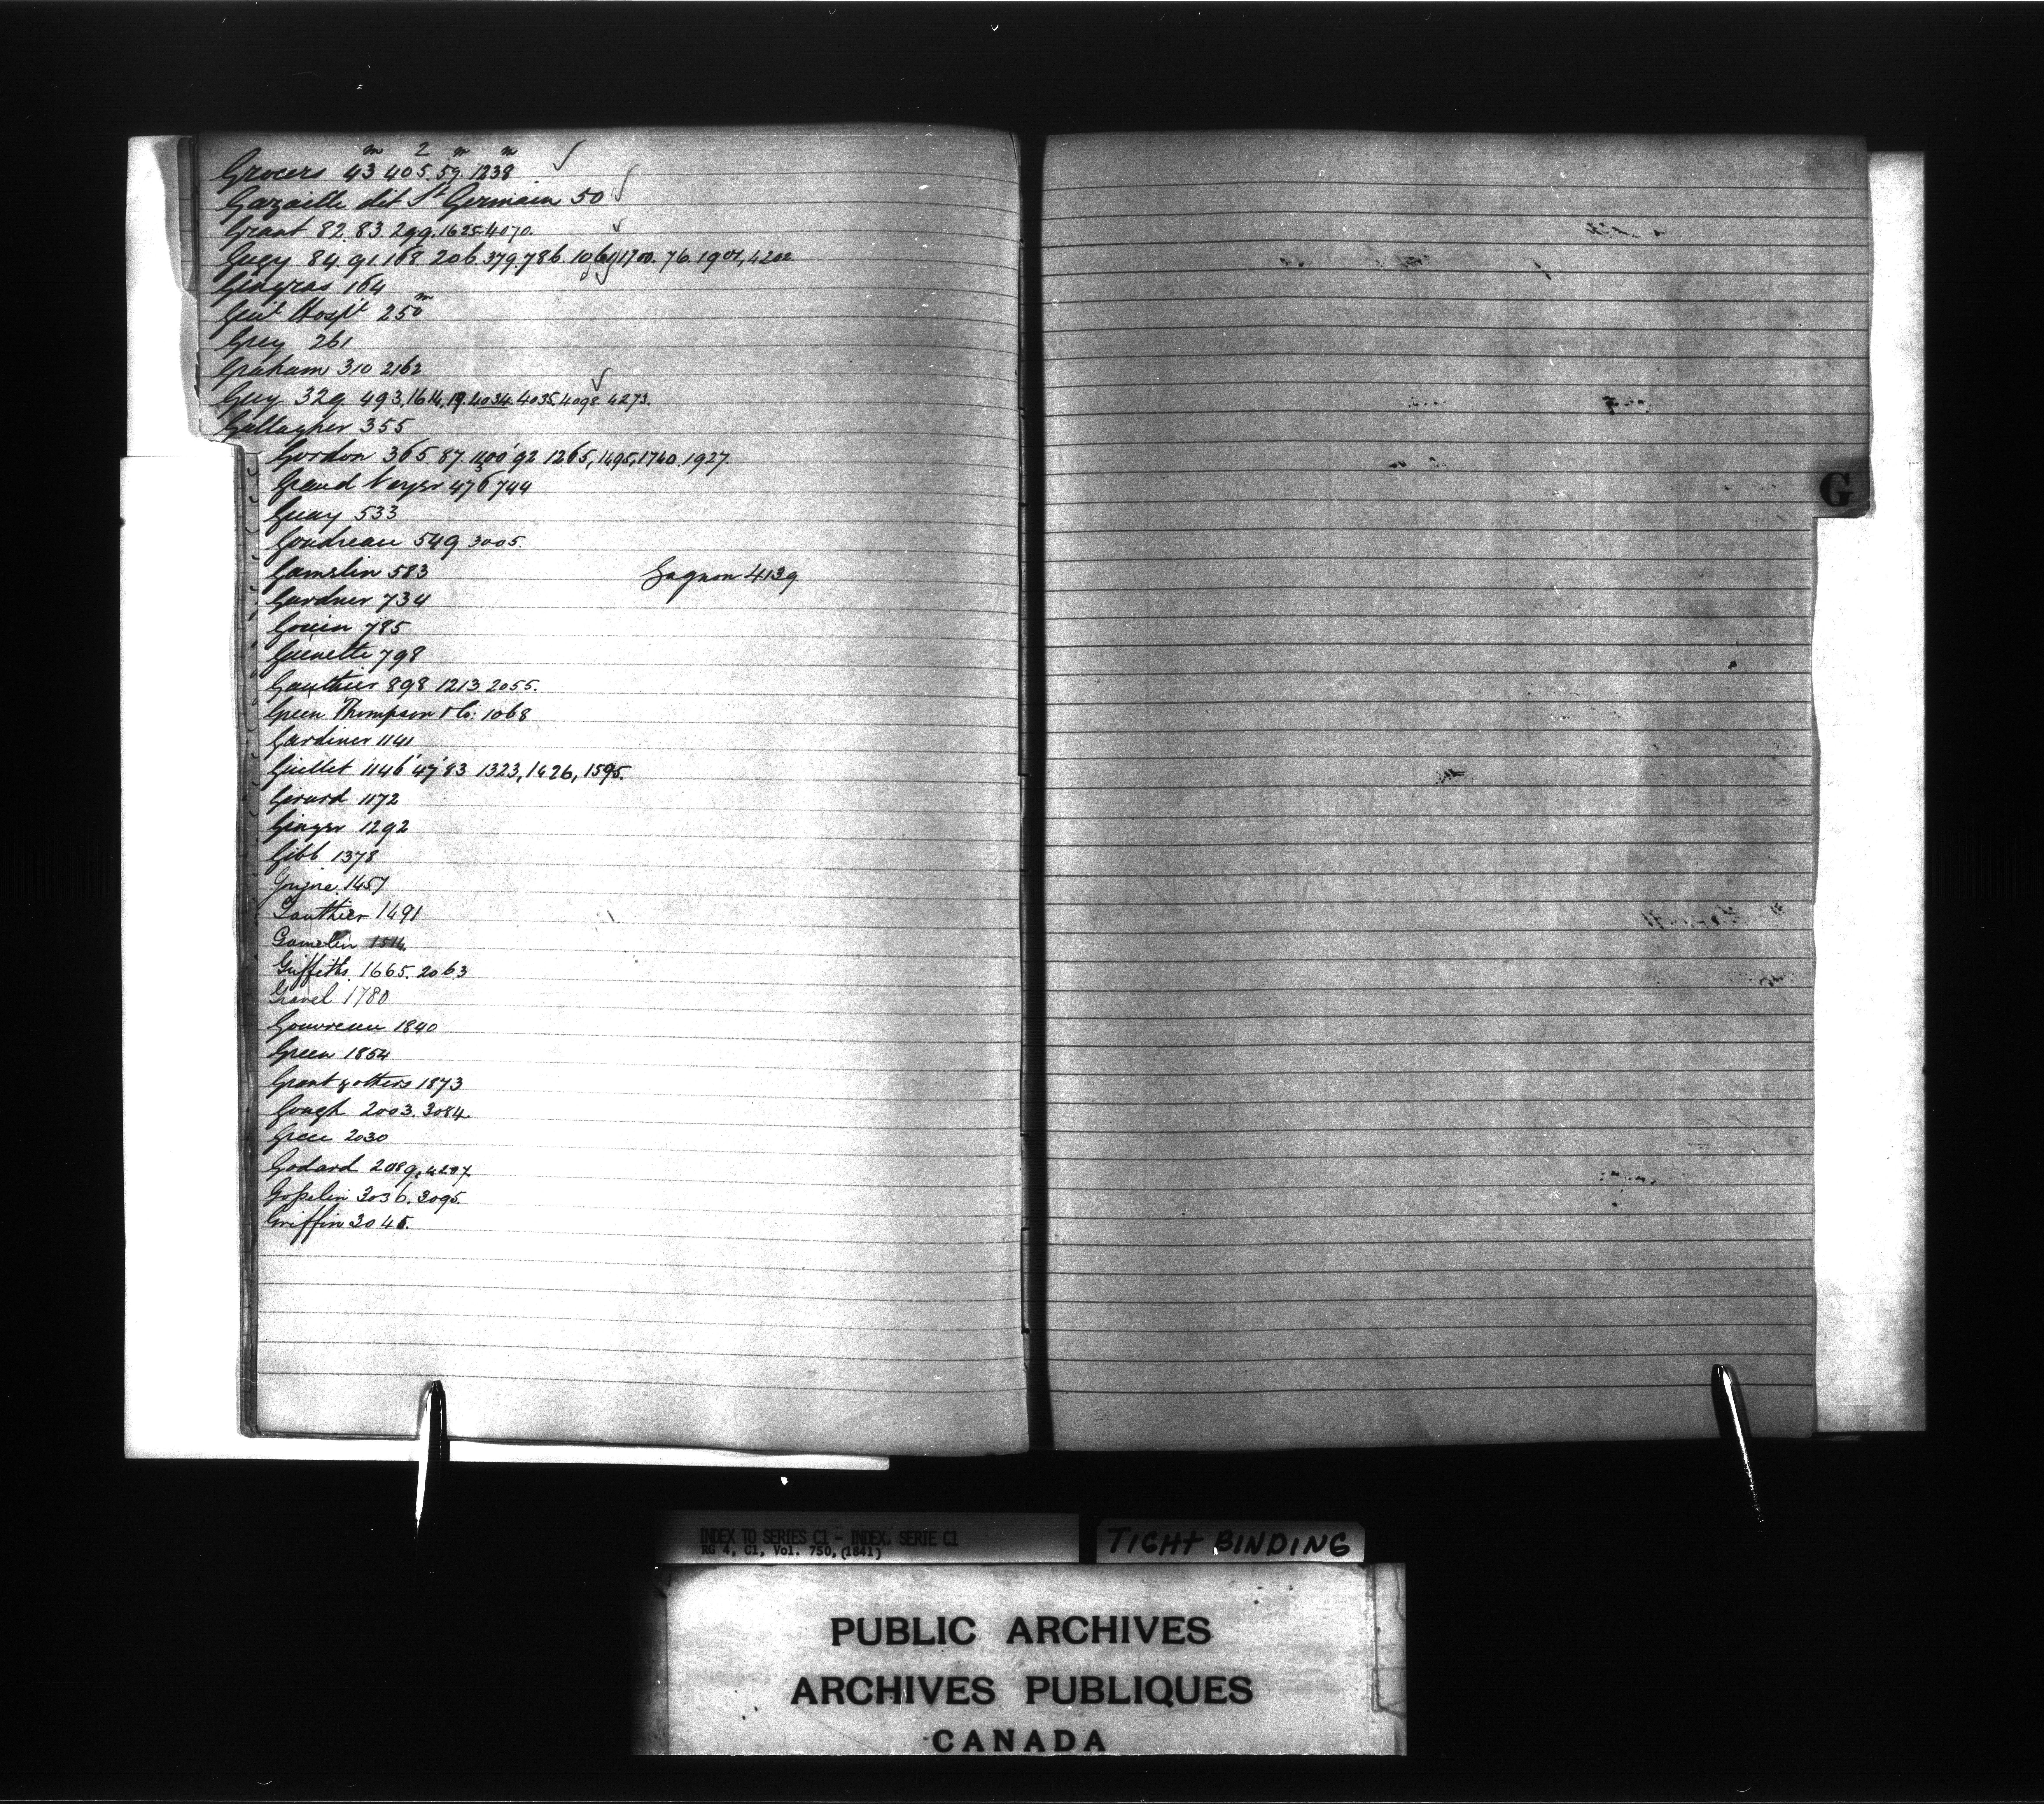 Grocers 43 405. 59. 1238
Gazaille dit St Germain 50
Grant 82. 83. 299. 1625. 4070.
Gugy 84. 91. 168. 206. 379. 786. 1700. 76. 1901, 4202
Gingras 164
Genl Hospl 250
Grey 261
Graham 310 2162
Guy 329. 493, 1614, 19. 4034. 4035. 4098. 4273.
Gallagher 355
Gordon 365. 87. 1100' 92 1265, 1495, 1740. 1927.
Grand Voyer 476 744
Guay 533
Goudreau 549 3005.
Gamelin 583 Gagnon 4139
Gardner 734
Gouin 785
Guenette 798
Gauthier 898 1213. 2055.
Green Thompson & Co: 1068
Gardiner 1141
Guillet 1146' 47' 83 1323, 1426, 1595.
Girard 1172
Ginger 1292
Gibb 1378
1457
Gauthier 1491
Gamelin 1514
Griffiths 1665. 2063
Gravel 1780
Gouvreau 1840
Green 1854
Grant & others 1873
Gough 2003. 3084.
2030
Godard 2089, 4207.
Gosselin 3036. 3095.
Griffin 3045.
G
INDEX TO SERIES C1 - INDEX, SERIE C1
RG 4, C1, Vol. 750, (1841)
TIGHT BINDING
PUBLIC ARCHIVES
ARCHIVES PUBLIQUES
CANADA